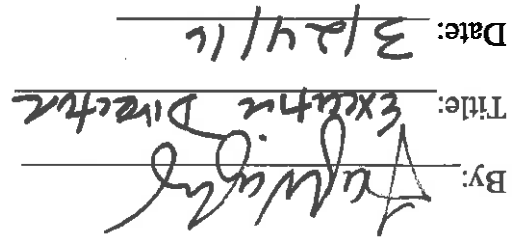 By:
Title: Executive Director
Date: 3/24/16